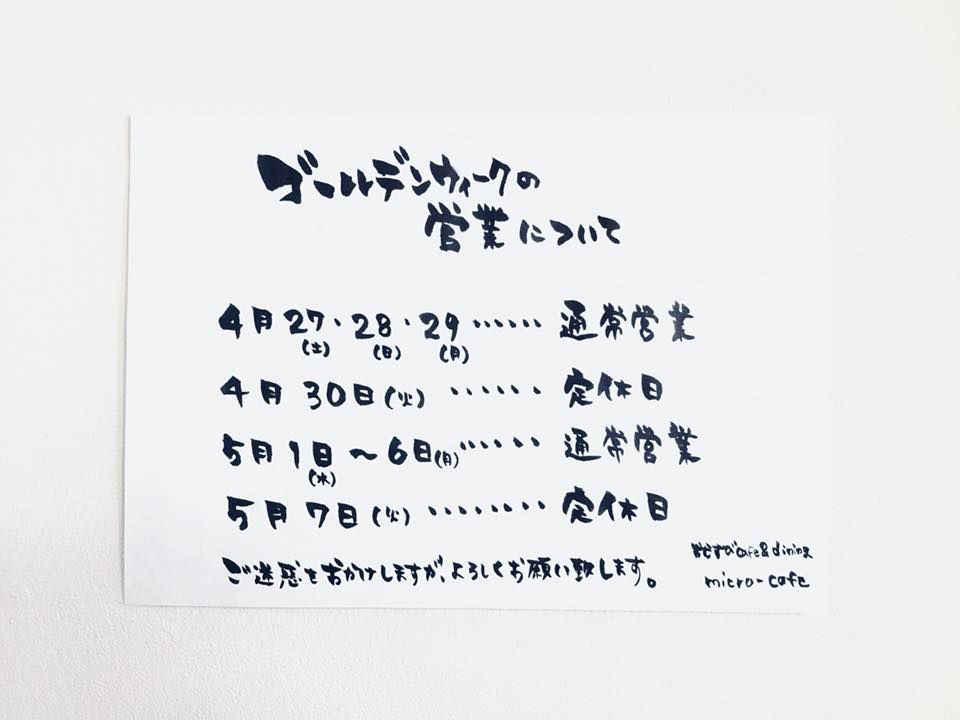 ゴールデンウィークの
営業について
4月27・28・29・・・・・・通常営業
(土) (日) (月)
4月30日(火)・・・・・・定休日
5月1日〜6日(月)・・・・・・通常営業
(水)
5月7日(火)・・・・・・・・定休日
ご迷惑をおかけしますが、よろしくお願い致します。
おむすびcafe&dining
micro-cafe